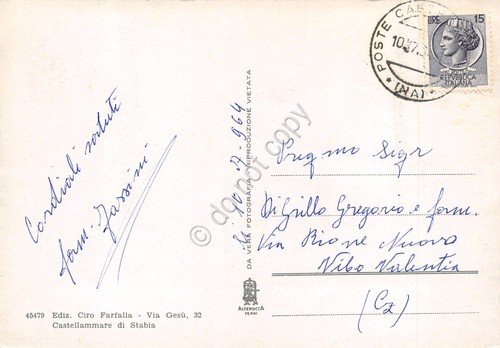 Cordiali saluti
fam. Iassini
li 10-7-964
DA VERA FOTOGRAFIA - RIPRODUZIONE VIETATA
ALTEROCCA
TERNI
45479 Ediz. Ciro Farfalla - Via Gesù, 32
Castellammare di Stabia
POSTE
(NA)
LIRE 15
REPUBBLICA
ITALIANA
Preg mo Sigr
Di Grillo Gregorio e fam.
Via Rione Nuovo
Vibo Valentia
(Cz)
do not copy